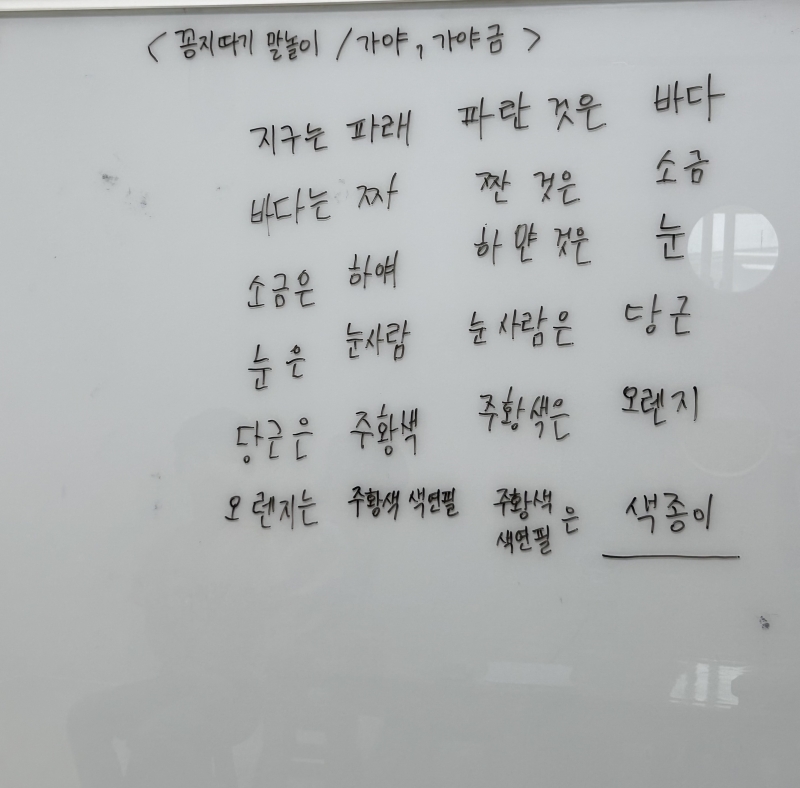 < 꽁지따기 말놀이 / 가야, 가야금 >
지구는 파래 파란 것은 바다
바다는 짜 짠 것은 소금
소금은 하얘 하얀 것은 눈
눈은 눈사람 눈사람은 당근
당근은 주황색 주황색은 오렌지
오렌지는 주황색 색연필 주황색 색연필은 색종이